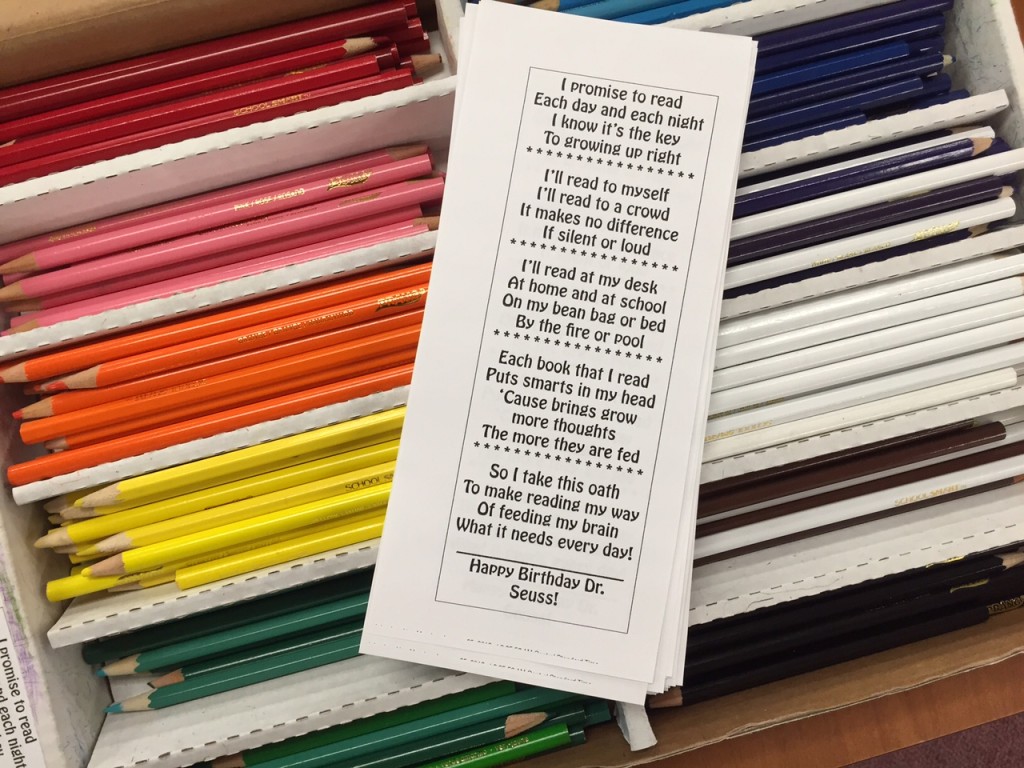 I promise to read
Each day and each night
I know it's the key
To growing up right
******************
I'll read to myself
I'll read to a crowd
It makes no difference
If silent or loud
******************
I'll read at my desk
At home and at school
On my bean bag or bed
By the fire or pool
******************
Each book that I read
Puts smarts in my head
'Cause brings grow
more thoughts
The more they are fed
******************
So I take this oath
To make reading my way
Of feeding my brain
What it needs every day!
Happy Birthday Dr.
Seuss!
I promise to read
and each night
SCHOOL SMART